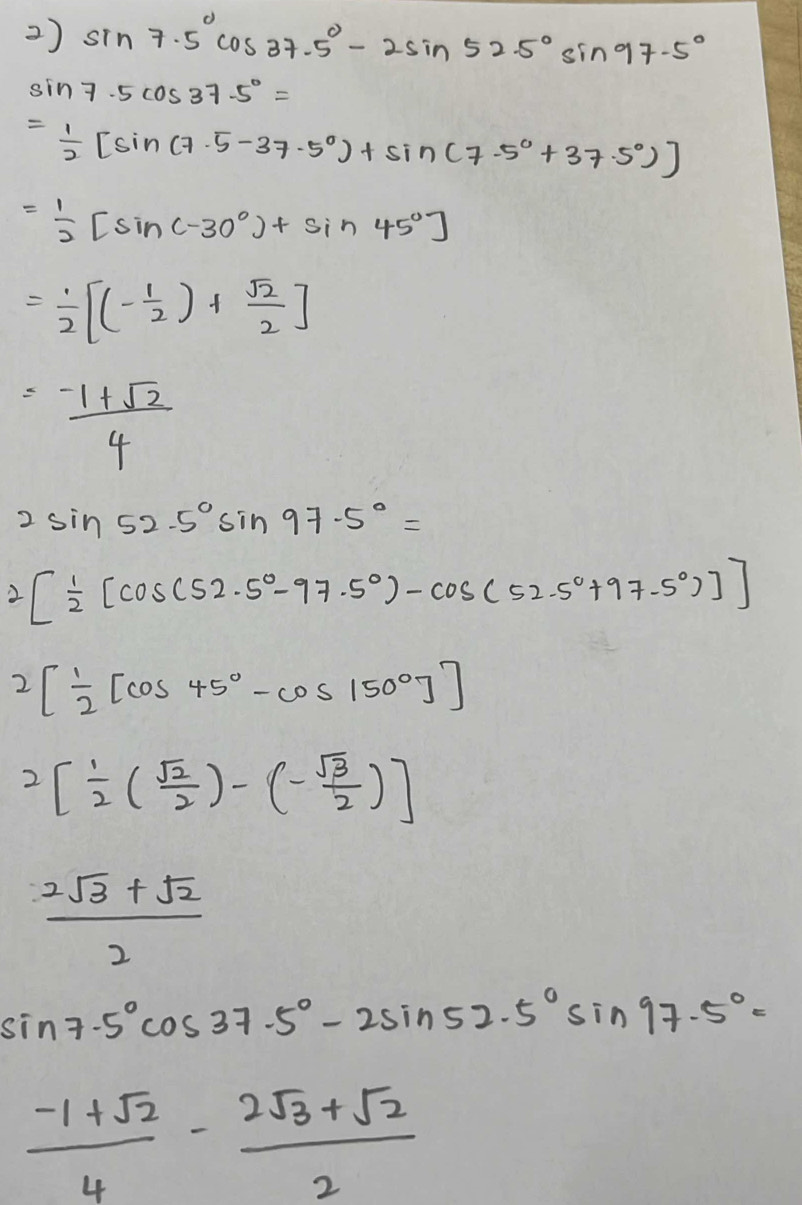 2) sin 7.5° cos 37.5° - 2 sin 52.5° sin 97.5°
sin 7.5 cos 37.5° =
= 1/2 [sin (7.5 - 37.5°) + sin (7.5° + 37.5°)]
= 1/2 [sin (-30°) + sin 45°]
= 1/2 [(-1/2) + √2/2]
= (-1 + √2)/4
2 sin 52.5° sin 97.5° =
2 [1/2 [cos (52.5° - 97.5°) - cos (52.5° + 97.5°)]]
2 [1/2 [cos 45° - cos 150°]]
2 [1/2 (√2/2) - (-√3/2)]
(2√3 + √2)/2
sin 7.5° cos 37.5° - 2 sin 52.5° sin 97.5° =
(-1 + √2)/4 - (2√3 + √2)/2